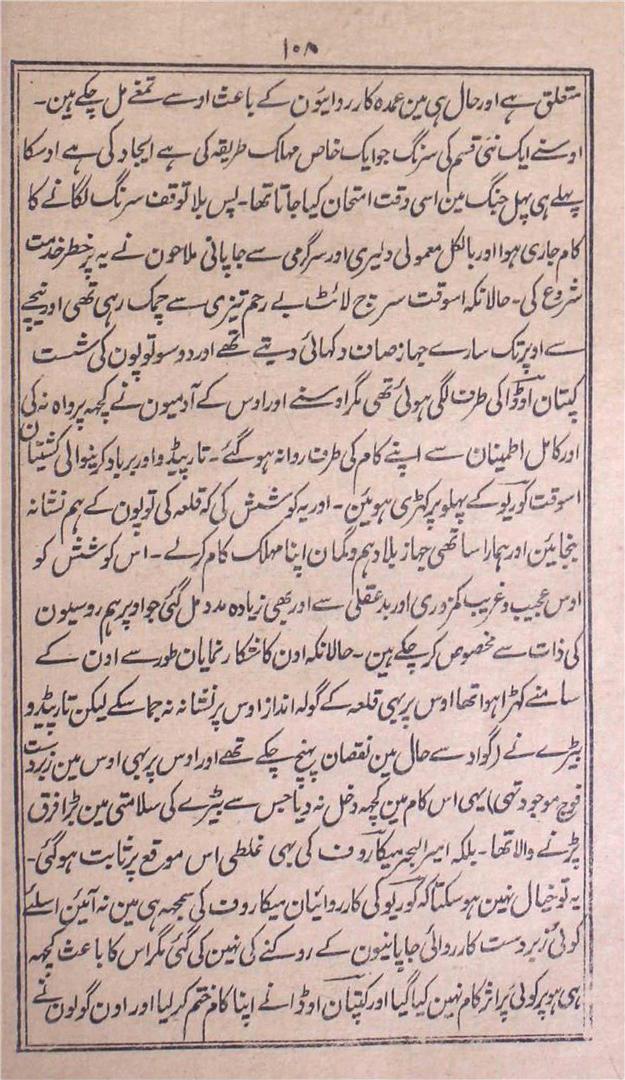 ۱۰۸
متعلق ہے اور حال ہی مین عمدہ کارروائیون کے باعث اوسے تمغے مل چکے ہین۔
اوسنے ایک نئی قسم کی سرنگ جو ایک خاص مہلک طریقہ کی ہے ایجاد کی ہے اوسکا
پہلے ہی پہل جنگ مین اسی وقت امتحان کیا جاتا تھا۔ پس بلا توقف سرنگ لگانے کا
کام جاری ہوا اور بالکل معمولی دلیری اور سرگرمی سے جاپانی ملاحون نے یہ پرخطر خدمت
شروع کی۔ حالانکہ اسوقت سرچ لائٹ بے رحم تیزی سے چمک رہی تھی اور نیچے
سے اوپر تک سارے جہاز صاف دکہائی دیتے تھے اور دو سو توپون کی شست
کپتان اوڈا کی طرف لگی ہوئی تھی مگر اوسنے اور اوس کے آدمیون نے کچھہ پرواہ نہ کی
اور کامل اطمینان سے اپنے کام کی طرف روانہ ہوگئے۔ تارپیڈو اور برباد کرنیوالی کشتیان
اسوقت کوریو کے پہلو پر کہڑی ہوئین۔ اور یہ کوشش کی کہ قلعہ کی توپون کے ہم نشانہ
بنجائین اور ہمارا ساتھی جہاز بلا وہم و گمان اپنا مہلک کام کرلے۔ اس کوشش کو
اوس عجیب و غریب کمزوری اور بدعقلی سے اور بھی زیادہ مدد مل گئی جو اوپر ہم روسیون
کی ذات سے مخصوص کر چکے ہین۔ حالانکہ اون کا شکار نمایان طور سے اون کے
سامنے کہڑا ہوا تھا اوس پر بہی قلعہ کے گولہ انداز اوس پر نشانہ نہ جما سکے لیکن تارپیڈو
بیڑے نے (گو اوسے حال مین نقصان پہنچ چکے تھے اور اوس پر بہی اوس مین زبردست
فوج موجود تہی) بہی اس کام مین کچھہ دخل نہ دیا جس سے بیڑے کی سلامتی مین بڑا فرق
پڑنے والا تھا۔ بلکہ امیر البحر میکاروف کی بہی غلطی اس موقع پر ثابت ہوگئی۔
یہ تو خیال نہین ہو سکتا کہ کوریو کی کارروائیان میکاروف کی سمجہہ ہی مین نہ آئین اسلئے
کوئی زبردست کارروائی جاپانیون کے روکنے کی نہین کی گئی مگر اس کا باعث کچھہ
ہی ہو پر کوئی پراثر کام نہین کیا گیا اور کپتان اوڈا نے اپنا کام ختم کر لیا اور اون گولون نے